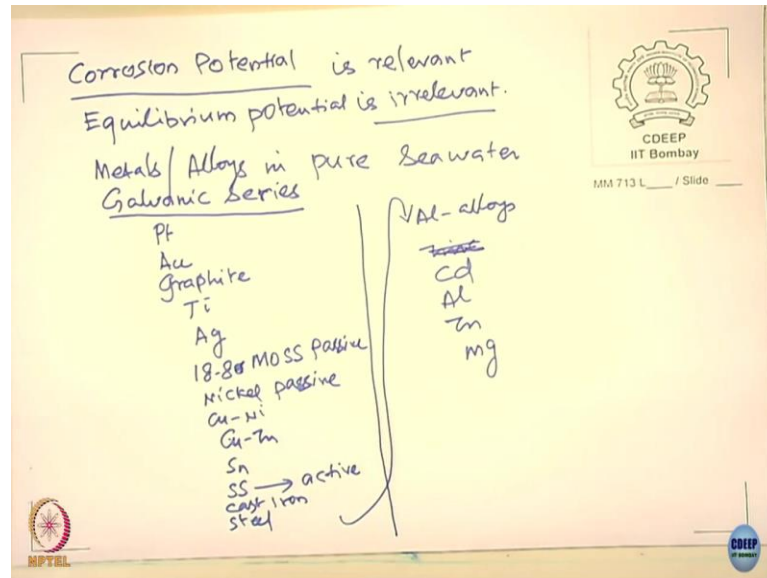 Corrosion Potential is relevant
Equilibrium potential is irrelevant.
Metals/Alloys in pure Seawater
Galvanic Series
Pt
Au
Graphite
Ti
Ag
18-8 MOSS Passive
Nickel passive
Cu-Ni
Cu-Zn
Sn
SS → active
cast iron
steel
Al-alloys
Cd
Al
Zn
mg
CDEEP
IIT Bombay
MM 713 L____ / Slide ____
NPTEL
CDEEP
IIT BOMBAY